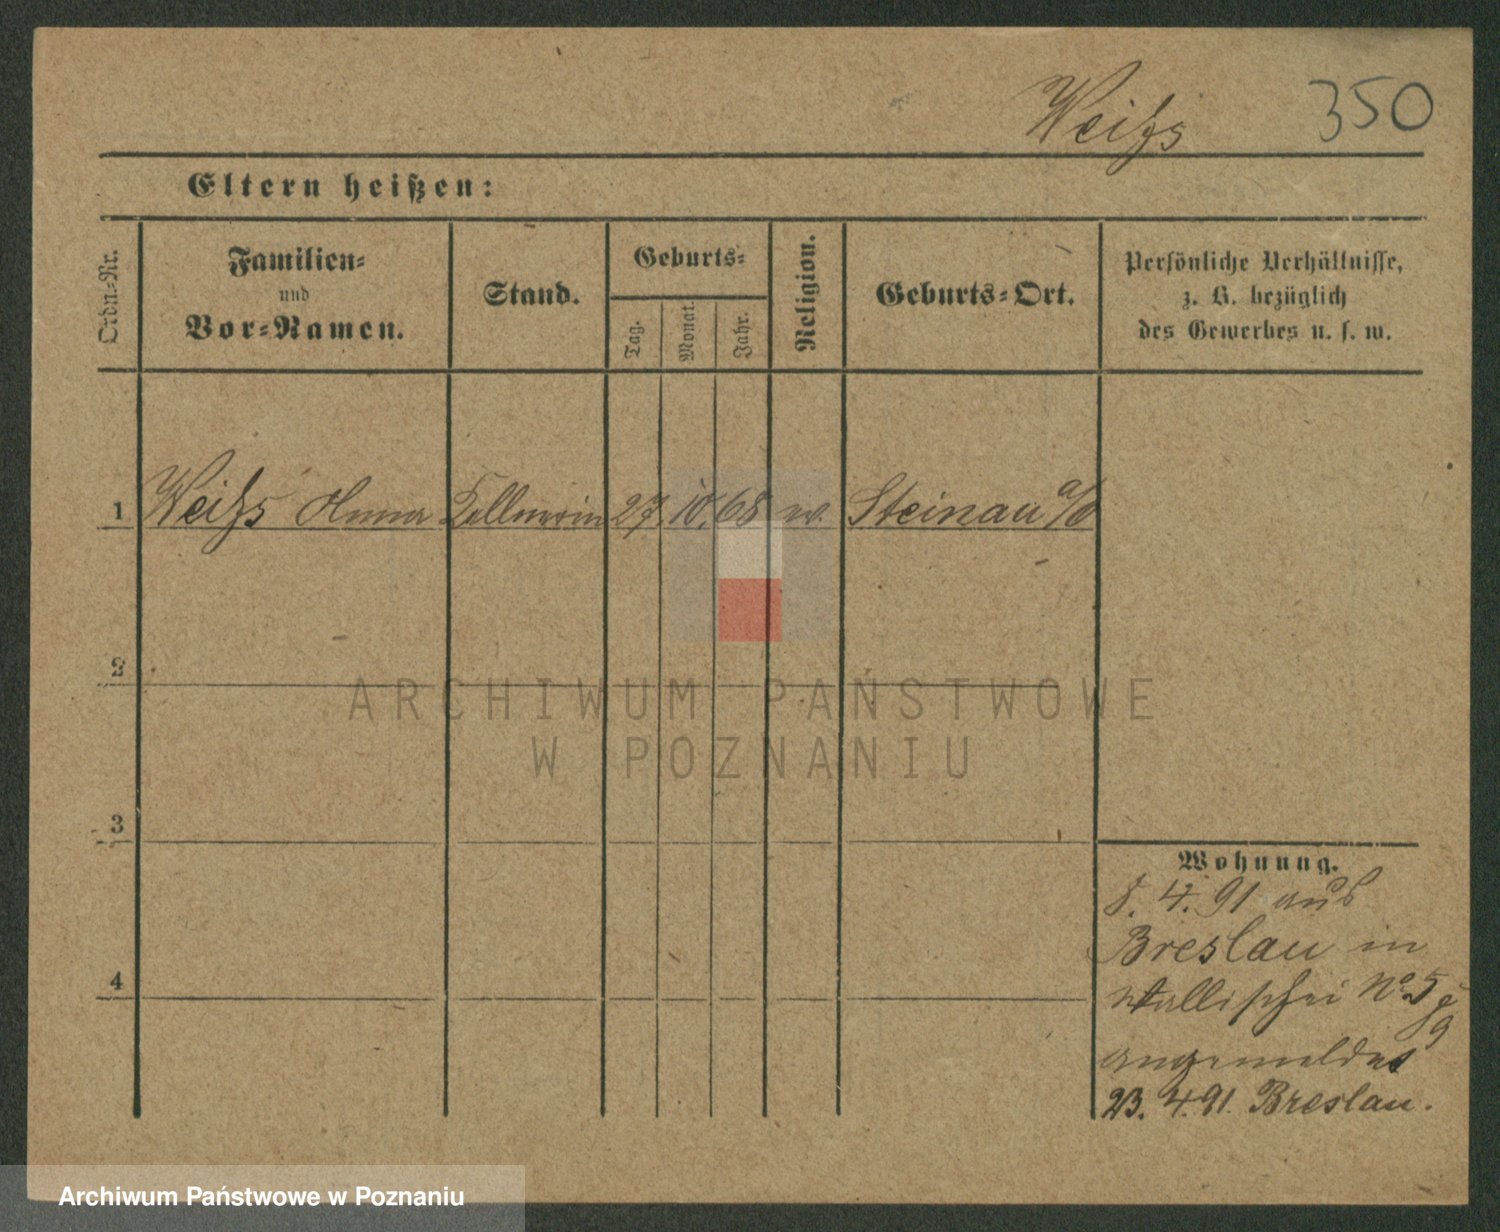 Weiſs 350
Eltern heißen:
Ordn=Nr.
Familien=
und
Vor=Namen.
Stand.
Geburts=
Tag.
Monat.
Jahr.
Religion.
Geburts=Ort.
Persönliche Verhältnisse,
z. B. bezüglich
des Gewerbes u. s. w.
1 Weiſs Anna Kellnerin 27. 10. 68 ev. Steinau a/O
2
3
4
Wohnung.
8. 4. 91 aus
Breslau in
Wallischei No 5
angemeldet
23. 4. 91. Breslau.
ARCHIWUM PAŃSTWOWE
W POZNANIU
Archiwum Państwowe w Poznaniu